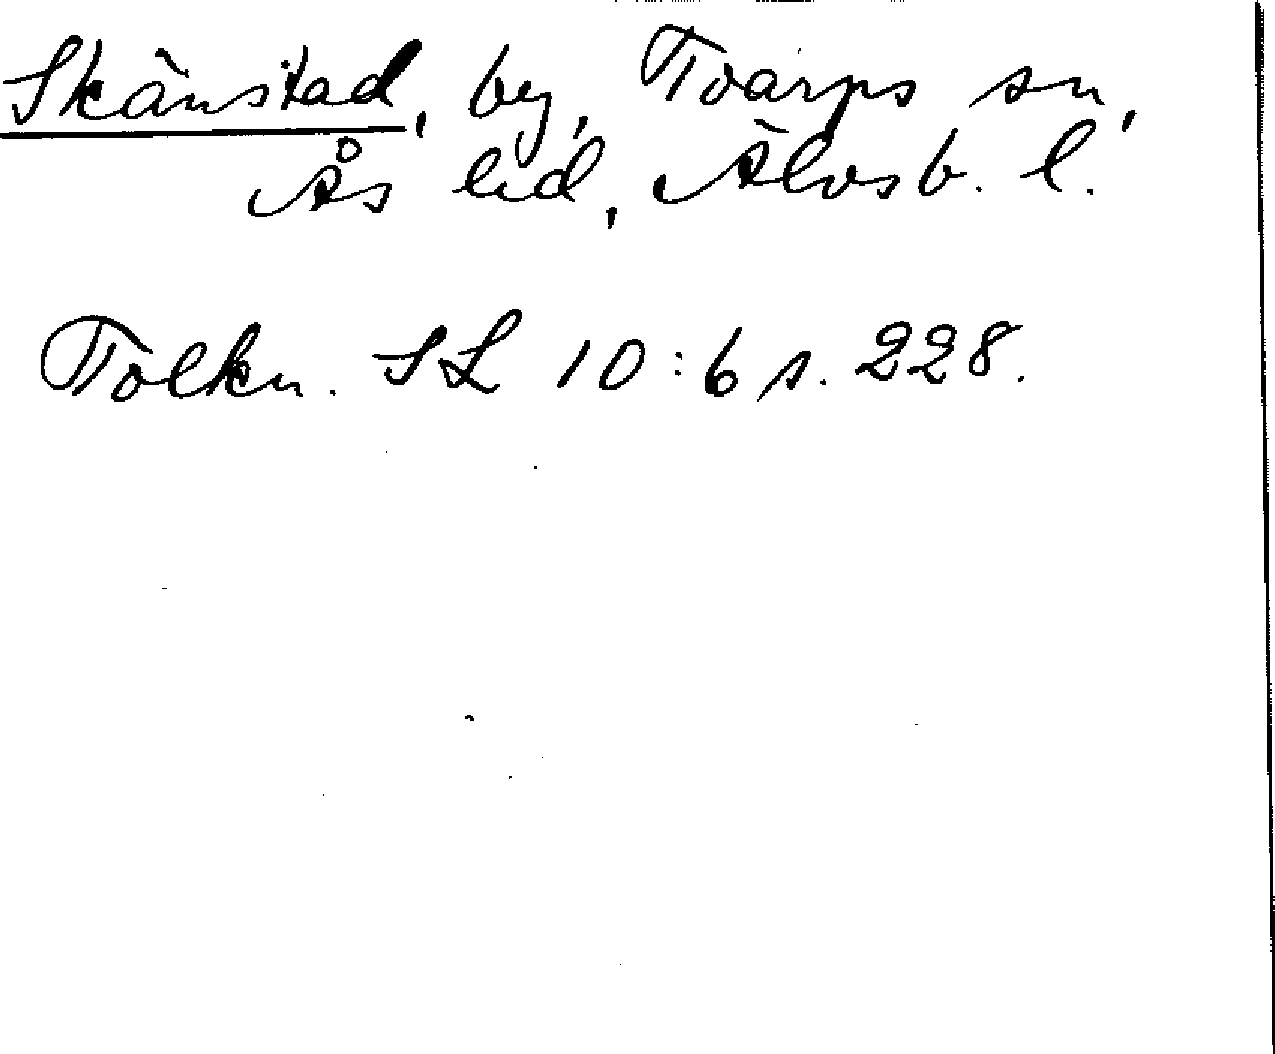 Skänstad, by, Toarps sn,
Ås hd, Älvsb. l.
Tolkn. SL 10:6 s. 228.